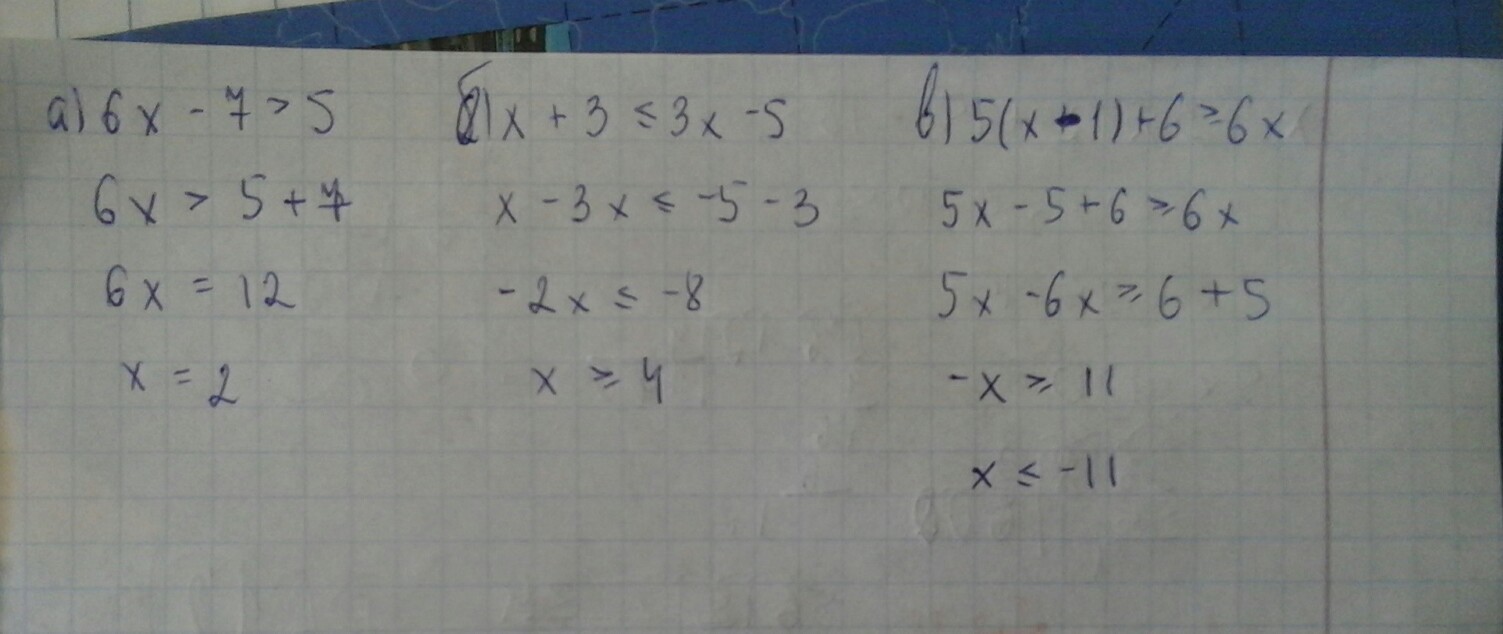 а) 6x - 7 > 5
6x > 5 + 7
6x = 12
x = 2
б) x + 3 ≤ 3x - 5
x - 3x ≤ -5 - 3
-2x ≤ -8
x ≥ 4
в) 5(x - 1) + 6 ≥ 6x
5x - 5 + 6 ≥ 6x
5x - 6x ≥ 6 + 5
-x ≥ 11
x ≤ -11